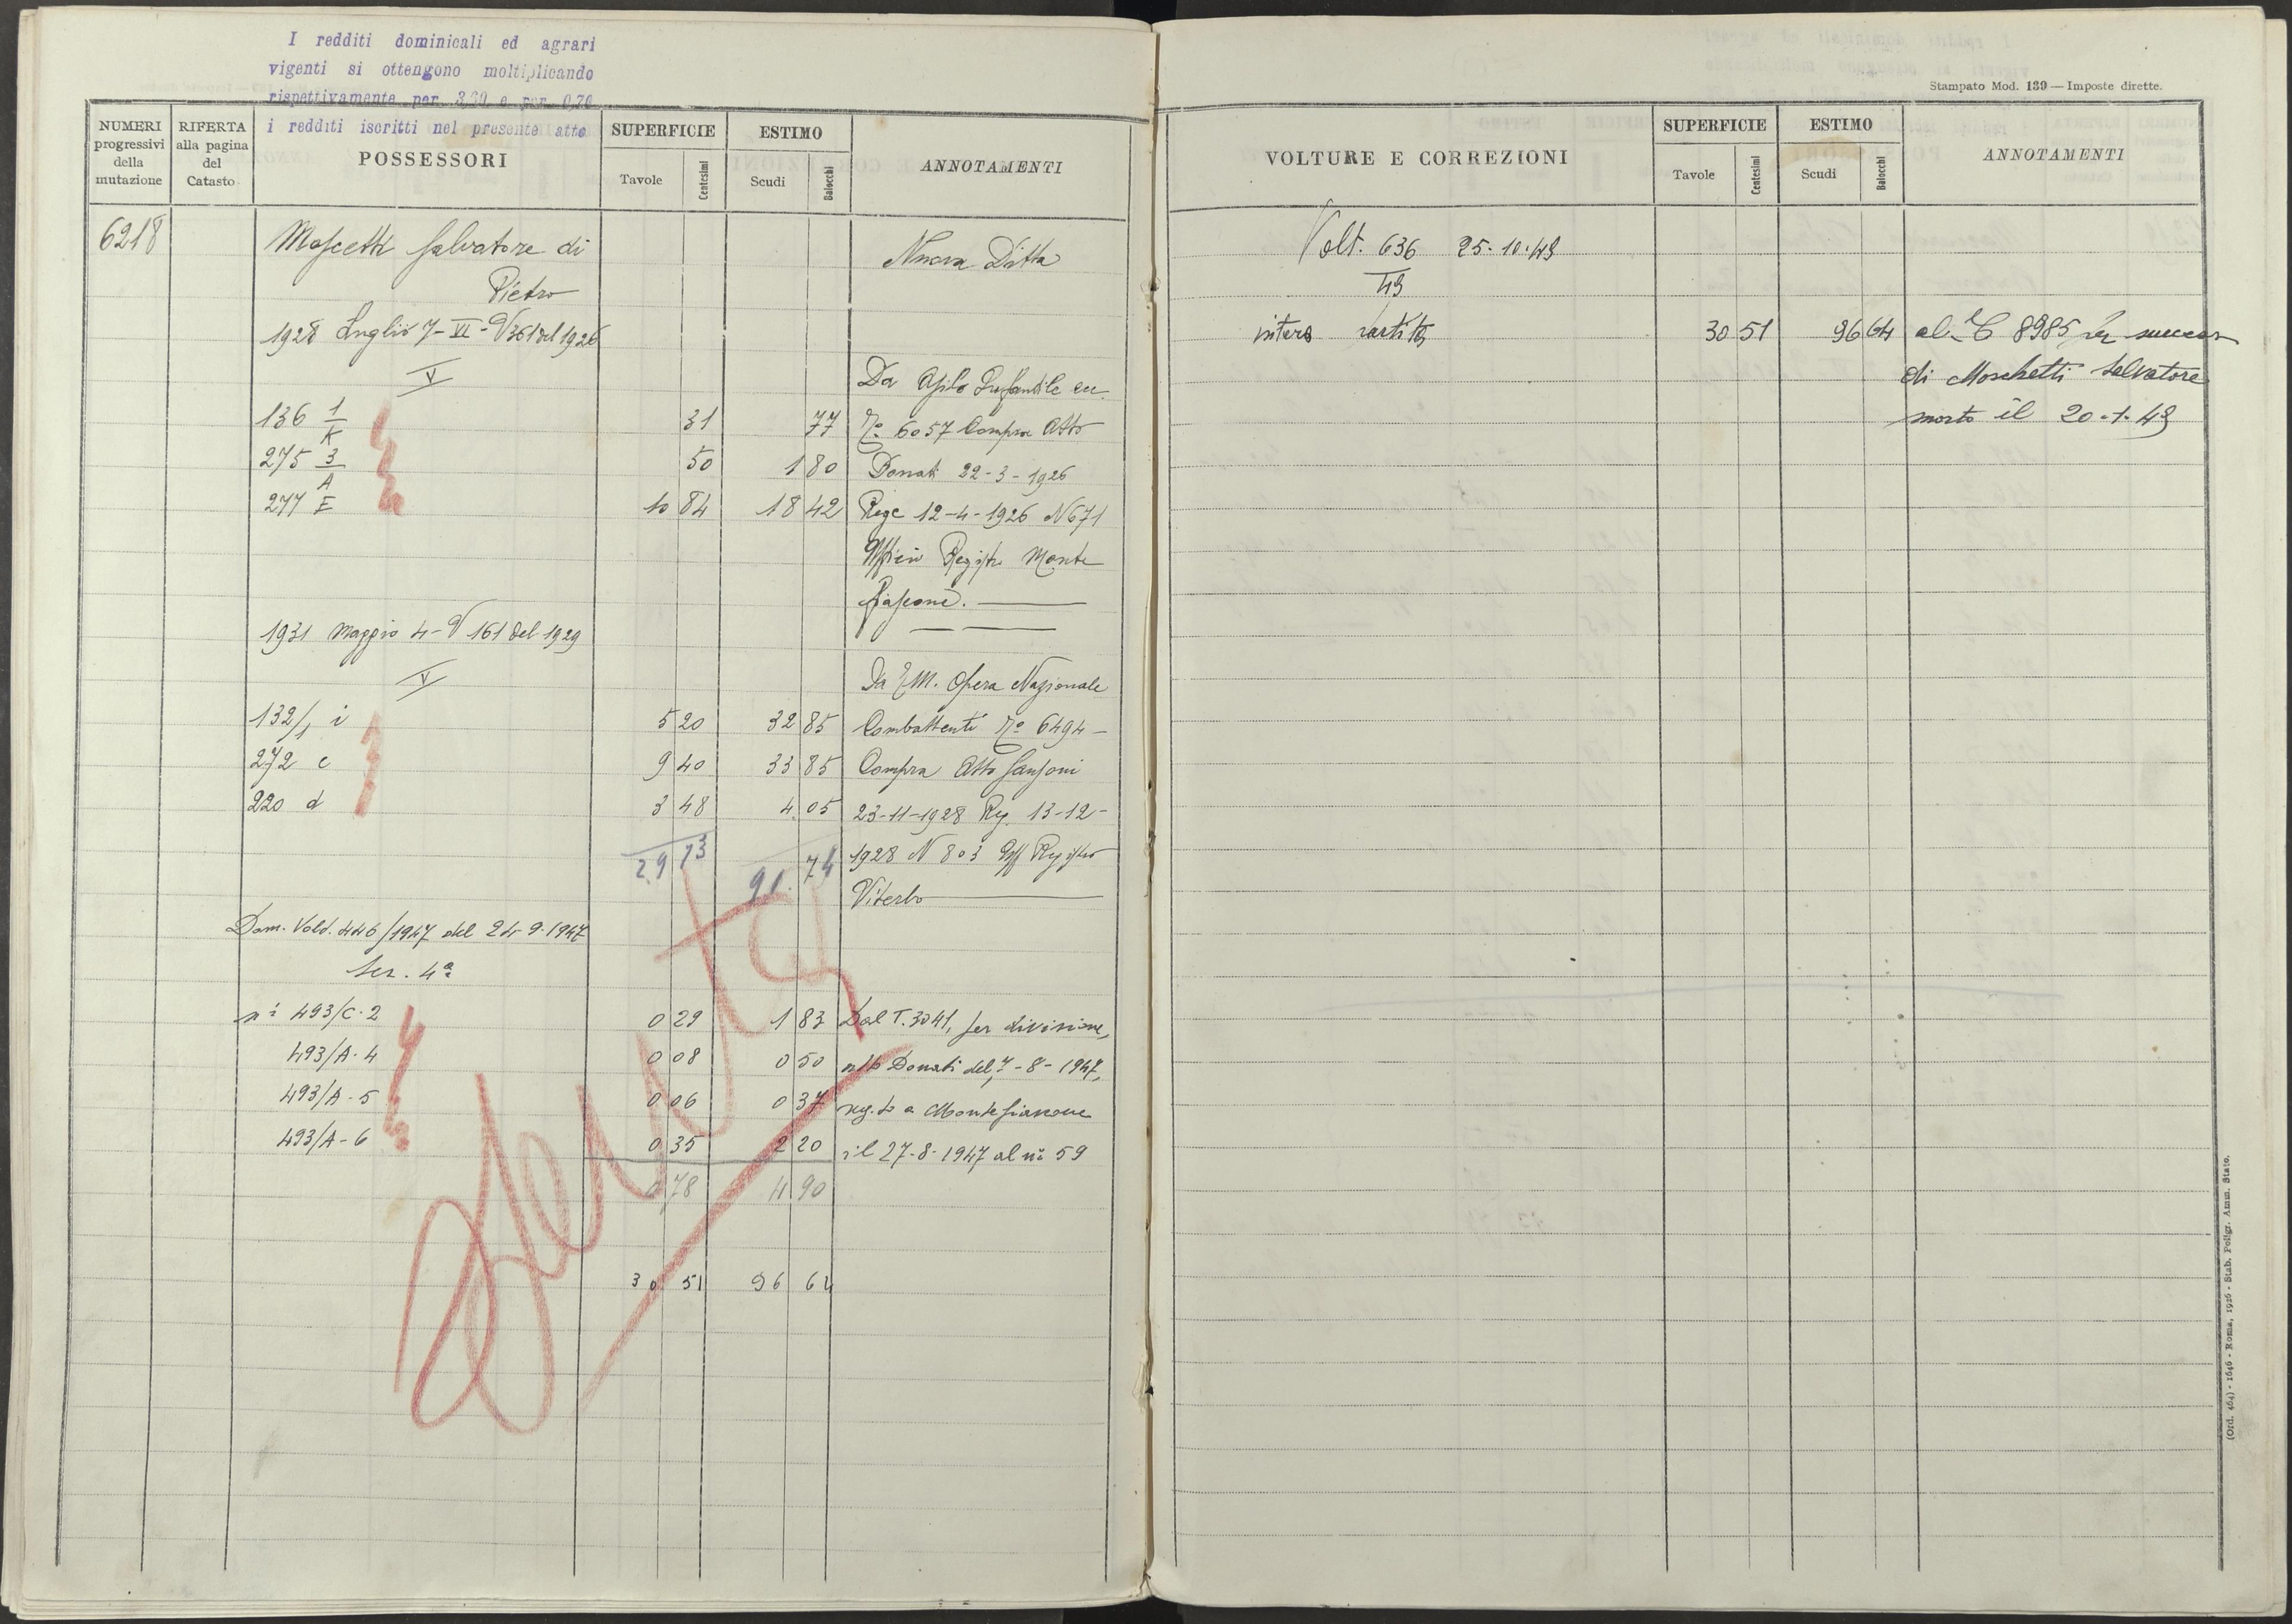 I redditi dominicali ed agrari
vigenti si ottengono moltiplicando
rispettivamente per
i redditi iscritti nel presente atto
NUMERI progressivi della mutazione
RIFERTA alla pagina del Catasto
POSSESSORI
SUPERFICIE
Tavole Centesimi
ESTIMO
Scudi Baiocchi
ANNOTAMENTI
6218 Moscetti Salvatore di Nuova Ditta
Pietro
1928 Luglio 7-VI-V361 del 1926
V Da Asilo Infantile
136 1/K 31 77 No 6057 Compra Atto
275 3/A 50 1 80 Donati 22-3-1926
277 E 10 84 18 42 Rege 12-4-1926 N 671
Ufficio Registro Monte
fiascone.
1931 Maggio 4-V 161 del 1929
V Da Opera Nazionale
132/1 i 5 20 32 85 Combattenti No 6494 -
272 c 9 40 33 85 Compra Atto Sansoni
220 d 3 48 4.05 23-11-1928 Reg. 13-12-
29 73 91. 74 1928 N 803 Uff Registro
Viterbo
Dom. Volt. 446/1947 del 24-9-1947
Sez. 4a
ni 493/C-2 0 29 1 83 Dal T. 3041, per divisione,
493/A-4 0 08 0 50 atto Donati del 7-8-1947,
493/A-5 0 06 0 37 reg.to a Montefiascone
493/A-6 0 35 2 20 il 27-8-1947 al no 59
0,78 4.90
30 51 96 64
Spenta
Stampato Mod. 139 — Imposte dirette.
VOLTURE E CORREZIONI
SUPERFICIE
Tavole Centesimi
ESTIMO
Scudi Baiocchi
ANNOTAMENTI
Volt. 636 25-10-49
49
intera partita 30 51 96 64 al 8985 per success
di Moschetti Salvatore
morto il 20-1-49
(Ord. 464) - 1646 - Roma, 1926 - Stab. Poligr. Amm. Stato.